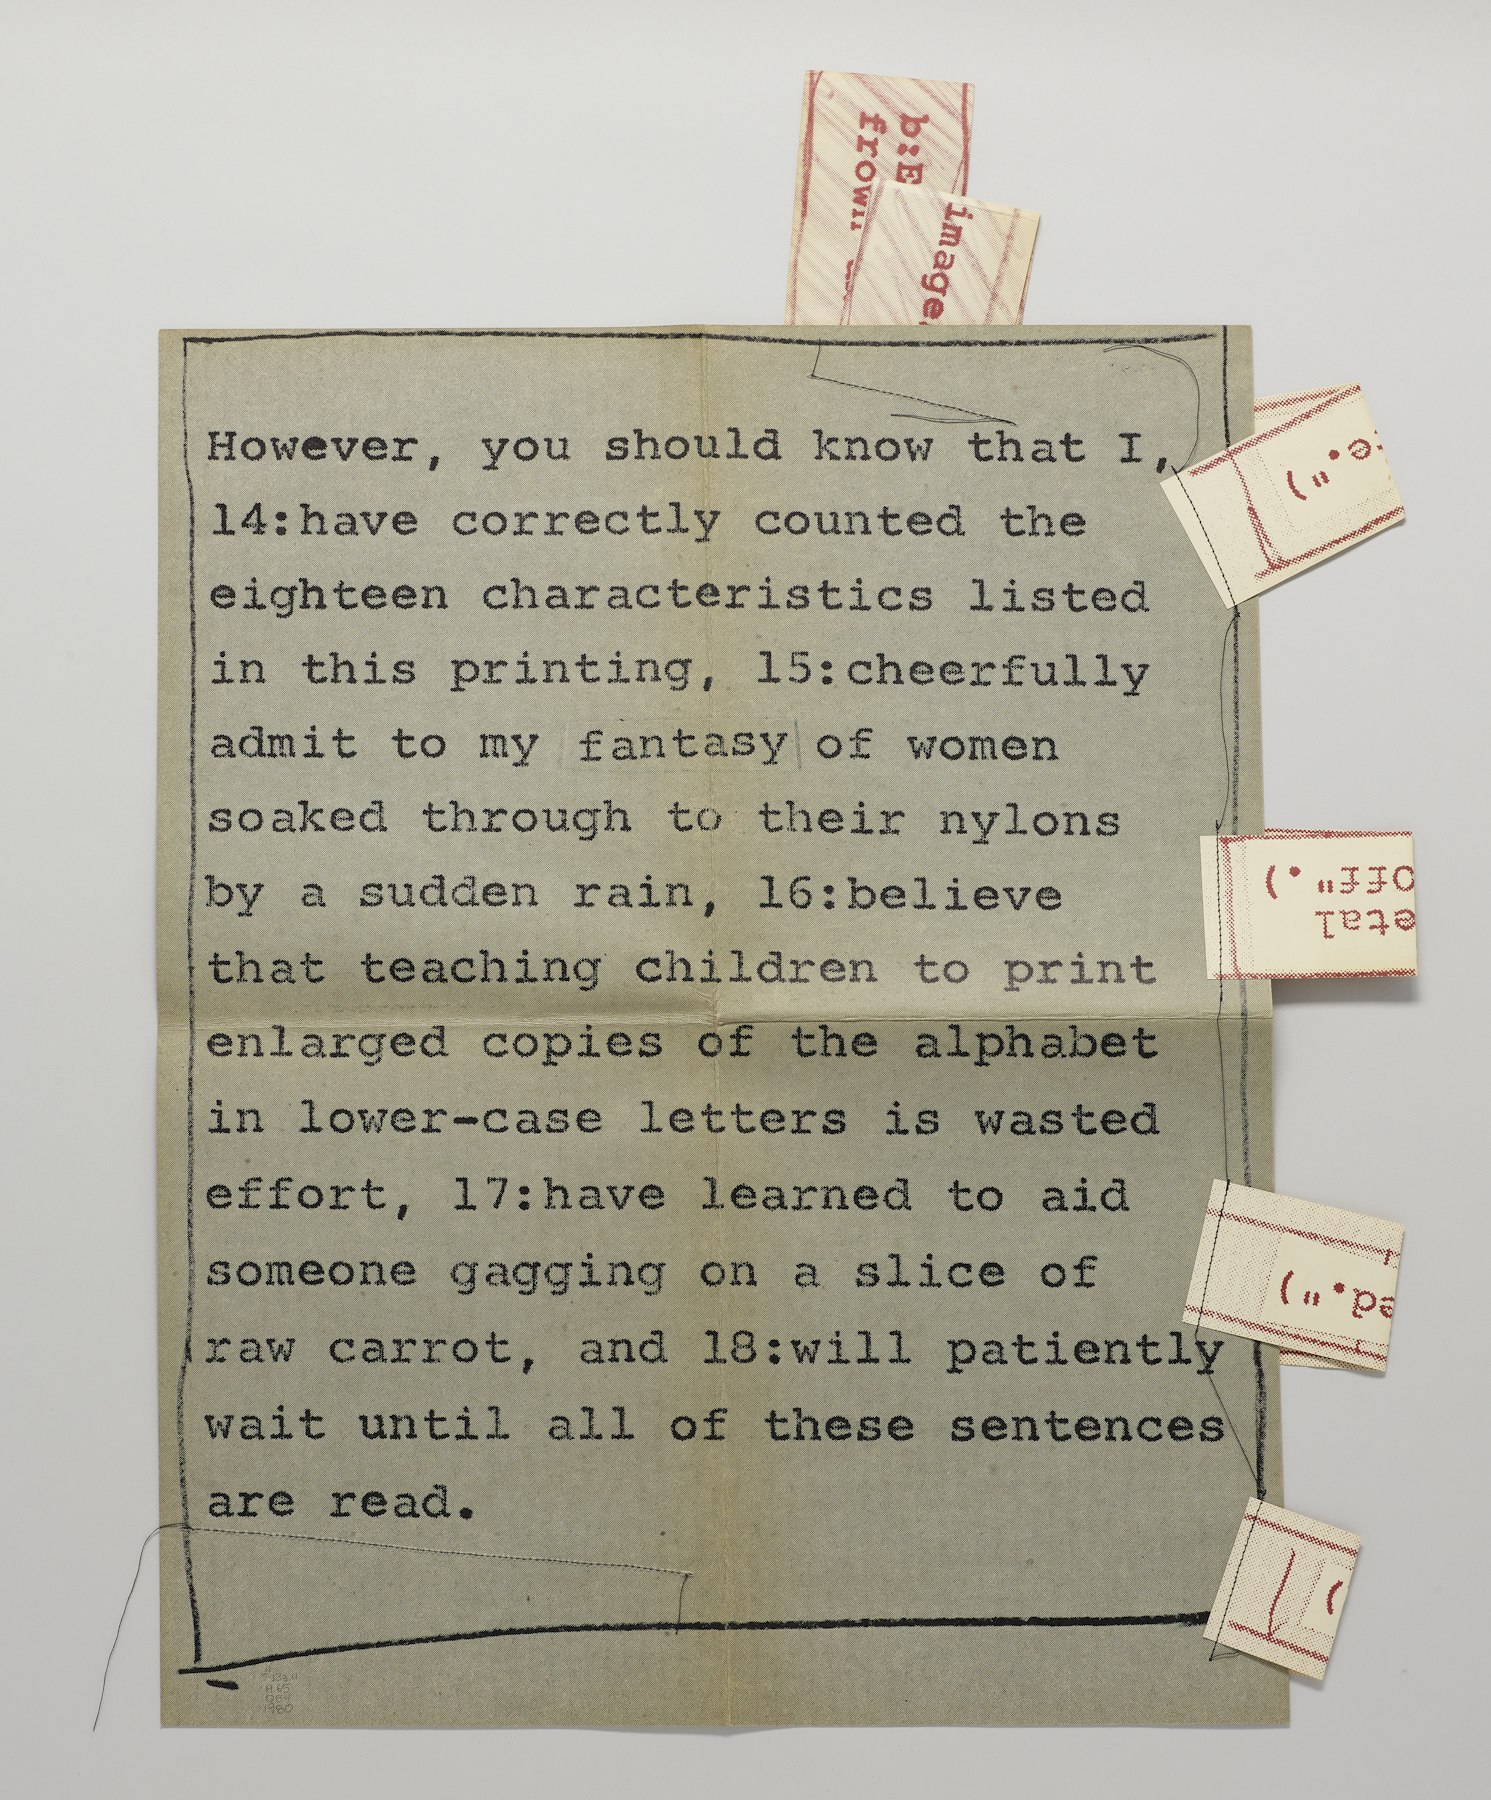 b:E
image
However, you should know that I,
14:have correctly counted the
eighteen characteristics listed
in this printing, 15:cheerfully
admit to my fantasy of women
soaked through to their nylons
by a sudden rain, 16:believe
that teaching children to print
enlarged copies of the alphabet
in lower-case letters is wasted
effort, 17:have learned to aid
someone gagging on a slice of
raw carrot, and 18:will patiently
wait until all of these sentences
are read.
e.")
etal
off".)
ed.")
)
1980